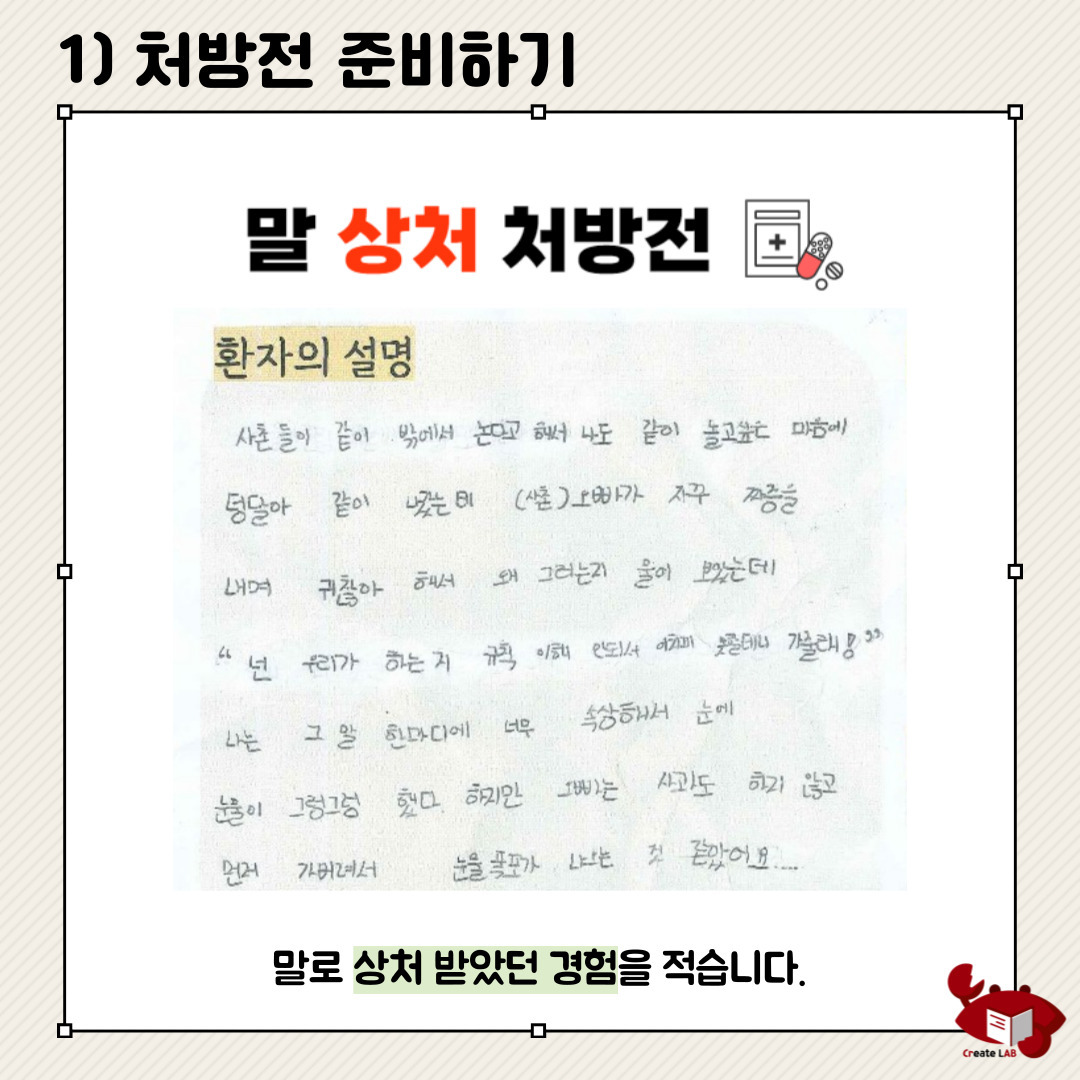 1) 처방전 준비하기
말 상처 처방전
환자의 설명
사촌들이 같이 밖에서 논다고 해서 나도 같이 놀고싶은 마음에
덩달아 같이 나갔는데 (사촌)오빠가 자꾸 짜증을
내며 귀찮아 해서 왜 그러는지 물어 보았는데
“넌 우리가 하는지 규칙 이해 안되서 어차피 못할테니 가줄래!”
나는 그 말 한마디에 너무 속상해서 눈에
눈물이 그렁그렁 했다 하지만 오빠는 사과도 하지 않고
먼저 가버려서 눈물폭포가 나오는 것 같았어요....
말로 상처 받았던 경험을 적습니다.
Create LAB